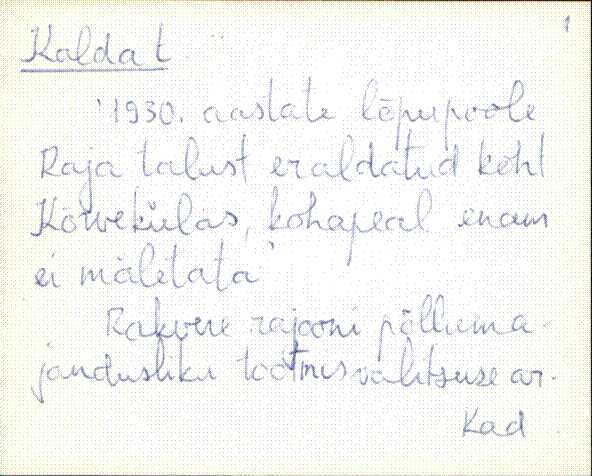 1
Kalda t.
'1930. aastate lõpupoole
Raja talust eraldatud koht
Kõrvekülas, kohapeal enam
ei mäletata'
Rakvere rajooni põlluma-
jandusliku tootmisvalitsuse ar.
Kad